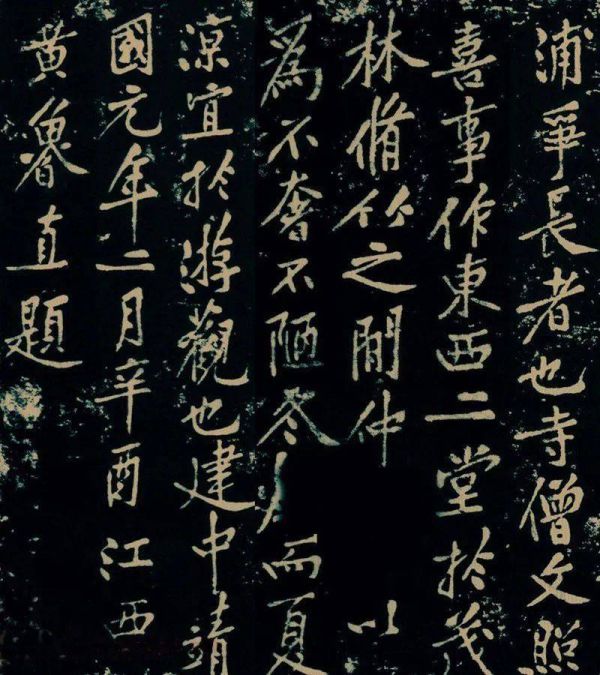 浦爭長者也寺僧文照
喜事作東西二堂於茂
林脩竹之閒仲以
為不奢不陋冬而夏
涼宜於游觀也建中靖
國元年二月辛酉江西
黄魯直題